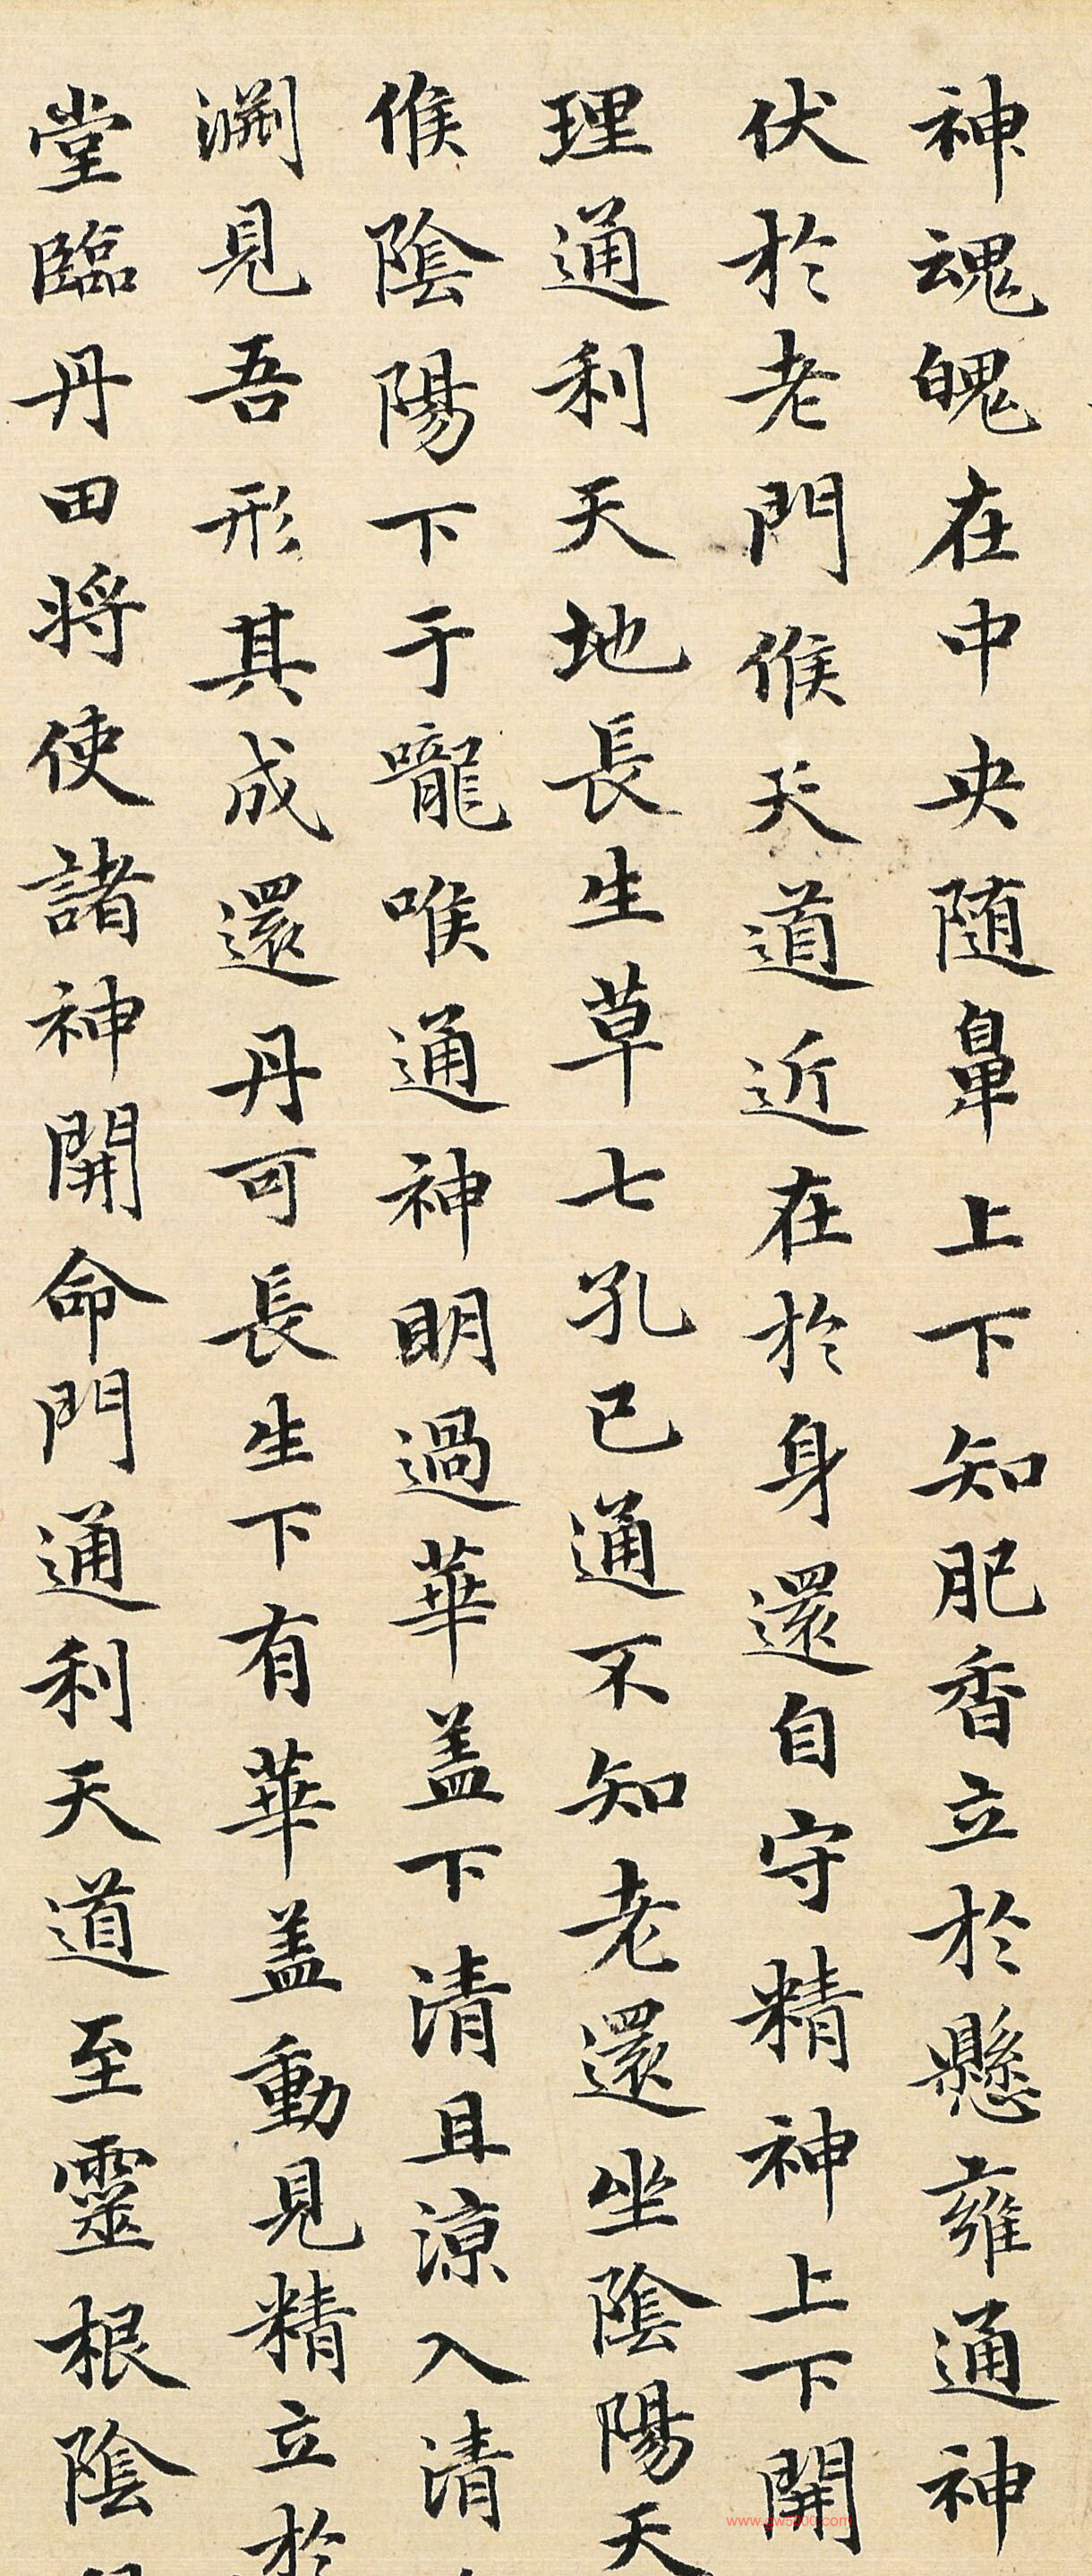 神魂魄在中央随鼻上下知肥香立於懸雍通神
伏於老門候天道近在於身還自守精神上下開
理通利天地長生草七孔已通不知老還坐陰陽天
候陰陽下于嚨喉通神明過華盖下清且涼入清
渊見吾形其成還丹可長生下有華盖動見精立於
堂臨丹田将使諸神開命門通利天道至靈根陰